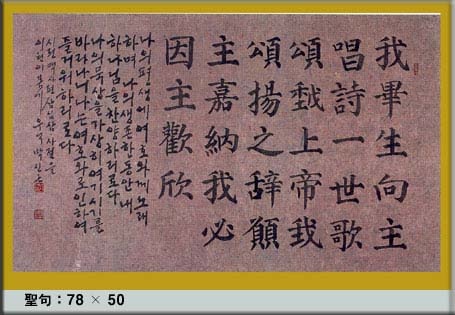 我畢生向主
唱詩一世歌
頌我上帝我
頌揚之辭願
主嘉納我必
因主歡欣
나의 평생에 여호와께 노래
하며 나의 생존한 동안 내
하나님을 찬양하리로다
나의 묵상을 가상히 여기시기를
바라나니 나는 여호와로 인하여
즐거워하리로다
시편 백사편 삼십삼 사절을
聖句 : 78 × 50